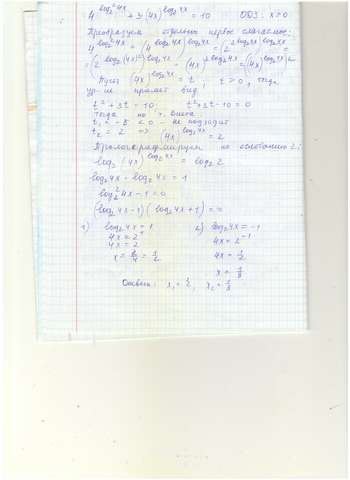 4^(log₂²4x) + 3(4x)^(log₂4x) = 10   ОДЗ: x>0
Преобразуем отдельно первое слагаемое:
4^(log₂²4x) = (4^(log₂4x))^(log₂4x) = (2^(2log₂4x))^(log₂4x) =
= (2^(log₂(4x)²))^(log₂4x) = (4x)^(2log₂4x) = ((4x)^(log₂4x))²
Пусть (4x)^(log₂4x) = t, t>0, тогда
ур-ие примет вид
t² + 3t = 10; t² + 3t - 10 = 0
Тогда по т. Виета
t₁ = -5 < 0 - не подходит
t₂ = 2 => (4x)^(log₂4x) = 2
Прологарифмируем по основанию 2:
log₂(4x)^(log₂4x) = log₂2
log₂4x · log₂4x = 1
log₂²4x - 1 = 0
(log₂4x - 1)(log₂4x + 1) = 0
1) log₂4x = 1   2) log₂4x = -1
4x = 2¹   4x = 2⁻¹
4x = 2   4x = 1/2
x = 2/4 = 1/2   x = 1/8
Ответ: x₁ = 1/2, x₂ = 1/8